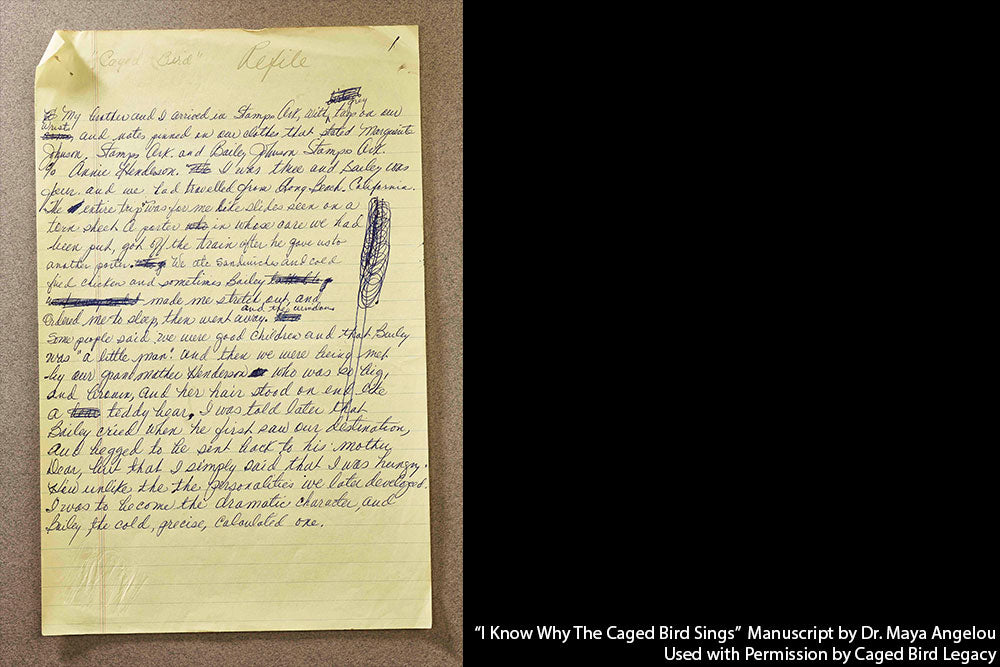 "Caged Bird" Refile 1
My brother and I arrived in Stamps Ark, with grey tags on our
wrist, and notes pinned on our clothes that stated Marguerite
Johnson, Stamps Ark. and Bailey Johnson Stamps Ark.
% Annie Henderson. I was three and Bailey was
four. and we had travelled from Long Beach. California.
The entire trip was for me like slides seen on a
torn sheet A porter in whose care we had
been put, got off the train after he gave us to
another porter. We ate sandwiches and cold
fried chicken and sometimes Bailey
made me stretch out, and
and the windows
Ordered me to sleep, then went away.
Some people said we were good children and that Bailey
was "a little man". and then we were being met
by our grandmother Henderson who was so big,
and brown, and her hair stood on end like
a teddy bear, I was told later that
Bailey cried when he first saw our destination,
and begged to be sent back to his mother
Dear, but that I simply said that I was hungry.
How unlike the the personalities we later developed.
I was to become the dramatic character, and
Bailey, the cold, precise, calculated one.
"I Know Why The Caged Bird Sings" Manuscript by Dr. Maya Angelou
Used with Permission by Caged Bird Legacy